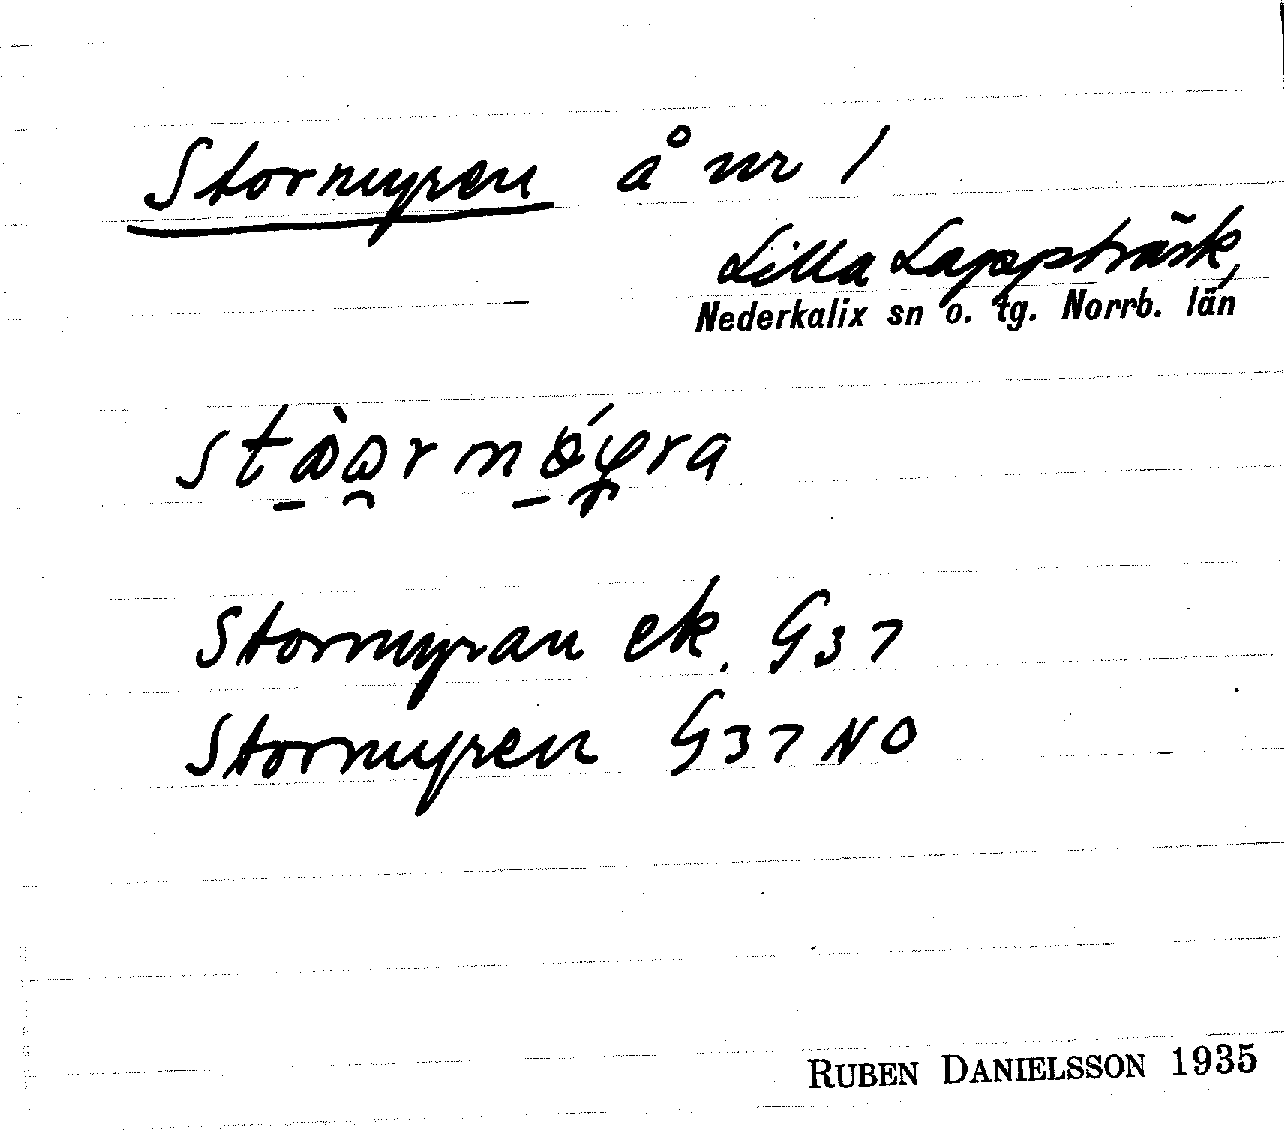 Stormyren å nr 1
Lilla Lappträsk,
Nederkalix sn o. tg. Norrb. län
Stormyran ek. G37
Stormyren G37 NO
RUBEN DANIELSSON 1935